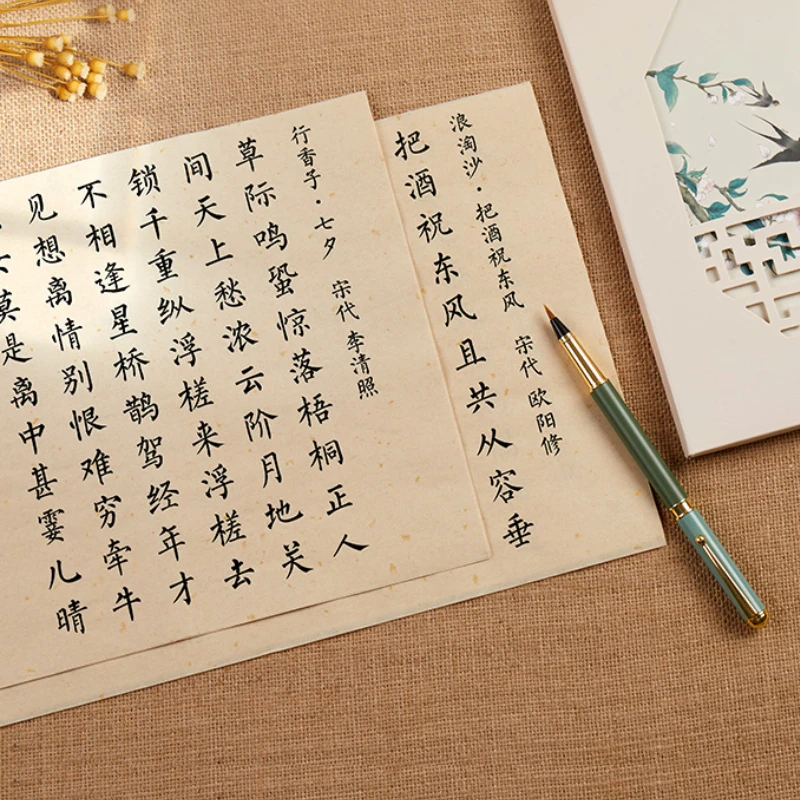 浪淘沙·把酒祝东风 宋代 欧阳修
把酒祝东风且共从容垂
行香子·七夕 宋代 李清照
草际鸣蛩惊落梧桐正人
间天上愁浓云阶月地关
锁千重纵浮槎来浮槎去
不相逢星桥鹊驾经年才
见想离情别恨难穷牵牛
莫是离中甚霎儿晴